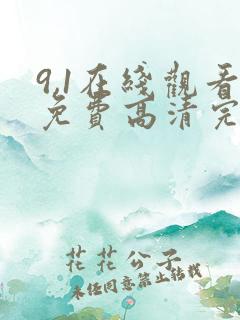 9.1在綫觀看
免費高清完
花花公子
未经同意禁止转载